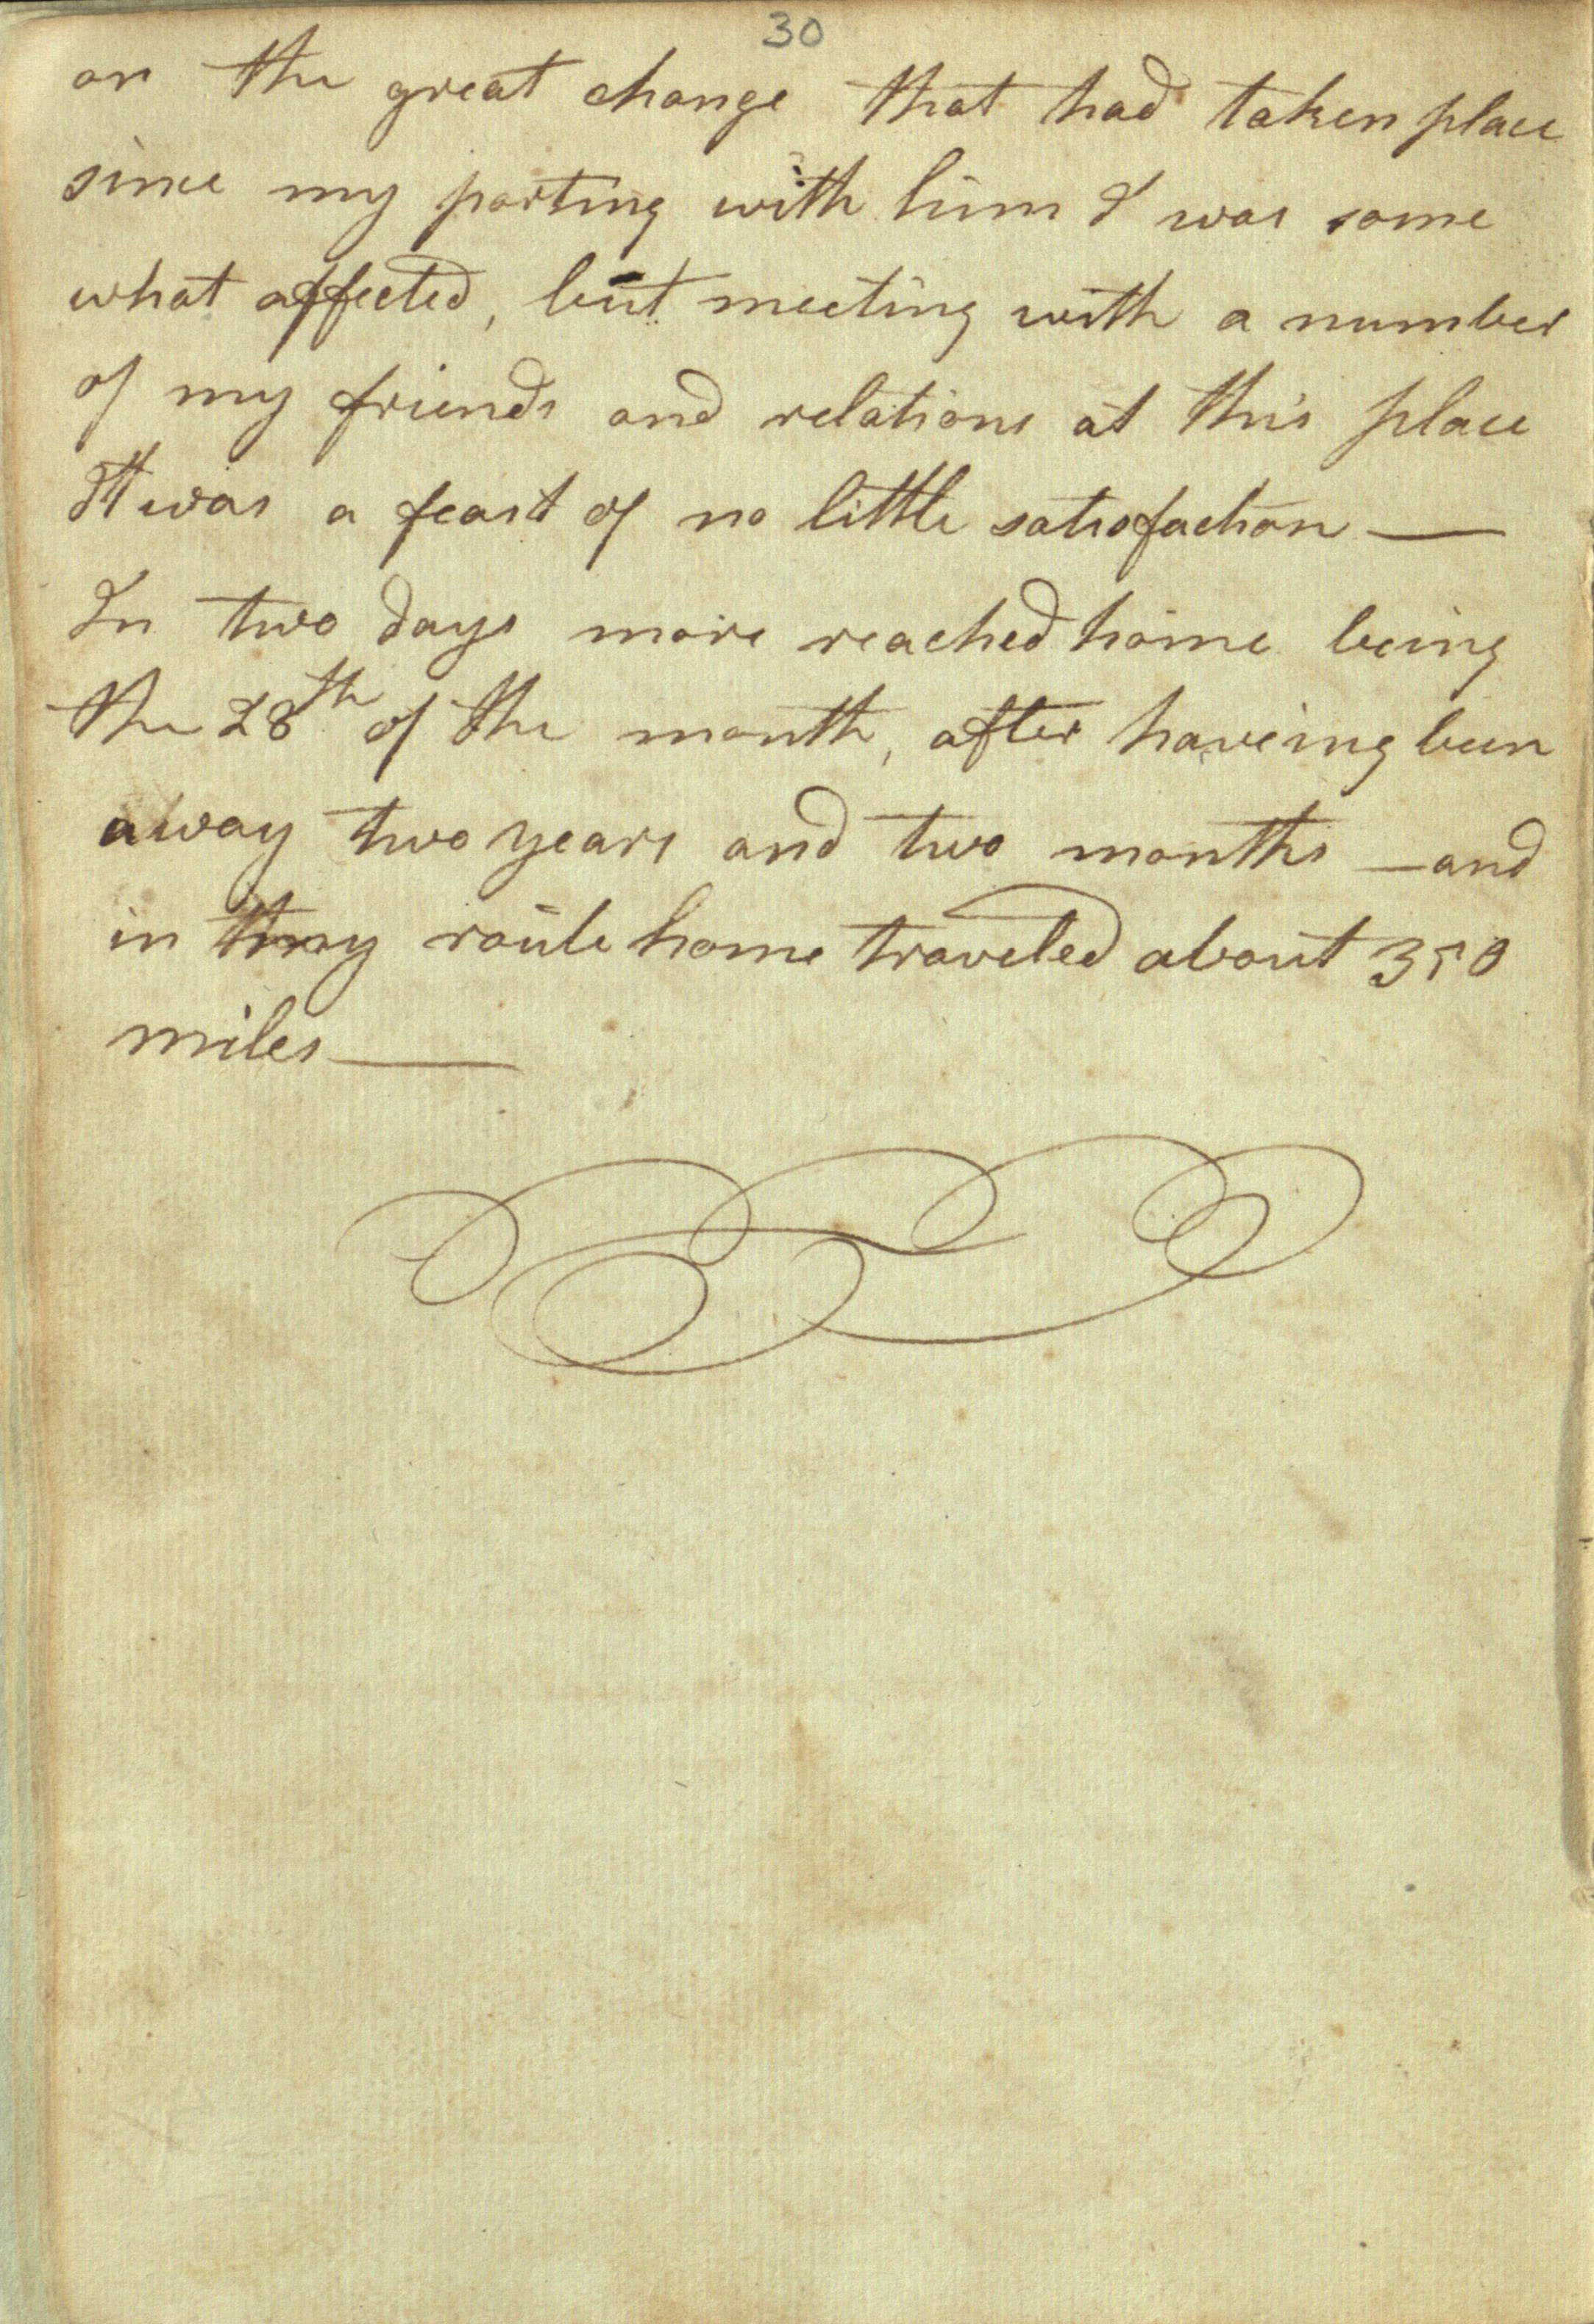 30
on the great change that had taken place
since my parting with him I was some
what affected, but meeting with a number
of my friends and relations at this place
It was a feast of no little satisfaction —
In two days more reached home being
the 28th of the month, after haveing been
away two years and two months — and
in my route home traveled about 350
miles —